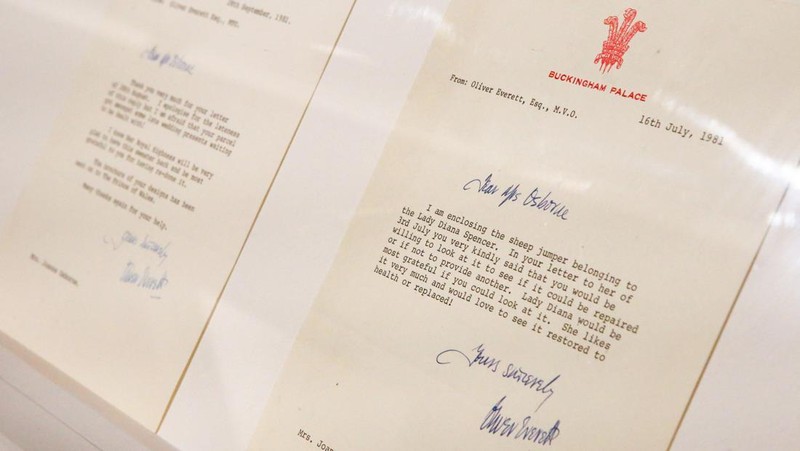 Oliver Everett Esq., MVO.
September, 1981.
Thank you very much for your letter
of I apologise for the lateness
of this reply but I am afraid that your parcel
was amongst some late wedding presents waiting
to be dealt with!
I know Her Royal Highness will be very
glad to have this sweater back and be most
grateful to you for having re-done it.
The brochure of your designs has been
sent on to The Prince of Wales.
Many thanks again for your help.
Yours sincerely
Oliver Everett
Mrs. Joanna Osborne.
BUCKINGHAM PALACE
From: Oliver Everett, Esq., M.V.O.
16th July, 1981
Dear Mrs Osborne
I am enclosing the sheep jumper belonging to
the Lady Diana Spencer. In your letter to her of
3rd July you very kindly said that you would be
willing to look at it to see if it could be repaired
or if not to provide another. Lady Diana would be
most grateful if you could look at it. She likes
it very much and would love to see it restored to
health or replaced!
Yours sincerely
Oliver Everett
Mrs. Joan